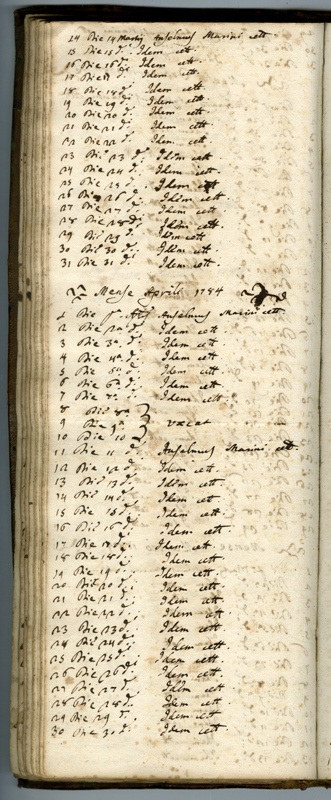 14 Die 14 Martij Anselmus Marini cett.
15 Die 15 d.ⁱ Idem cett.
16 Die 16 d.ⁱ Idem cett.
17 Die 17 d.ⁱ Idem cett.
18 Die 18 d.ⁱ Idem cett.
19 Die 19 d.ⁱ Idem cett.
20 Die 20 d.ⁱ Idem cett.
21 Die 21 d.ⁱ Idem cett.
22 Die 22 d.ⁱ Idem cett.
23 Die 23 d.ⁱ Idem cett.
24 Die 24 d.ⁱ Idem cett.
25 Die 25 d.ⁱ Idem cett.
26 Die 26 d.ⁱ Idem cett.
27 Die 27 d.ⁱ Idem cett.
28 Die 28 d.ⁱ Idem cett.
29 Die 29 d.ⁱ Idem cett.
30 Die 30 d.ⁱ Idem cett.
31 Die 31 d.ⁱ Idem cett.
Mense Aprili 1784
1 Die pª Anselmus Marini cett.
2 Die 2ª d.ⁱ Idem cett.
3 Die 3ª d.ⁱ Idem cett.
4 Die 4ª d.ⁱ Idem cett.
5 Die 5ª d.ⁱ Idem cett.
6 Die 6ª d.ⁱ Idem cett.
7 Die 7ª d.ⁱ Idem cett.
8 Die 8ª
9 Die 9ª vacat
10 Die 10
11 Die 11 d.ⁱ Anselmus Marini cett.
12 Die 12 d.ⁱ Idem cett.
13 Die 13 d.ⁱ Idem cett.
14 Die 14 d.ⁱ Idem cett.
15 Die 15 d.ⁱ Idem cett.
16 Die 16 d.ⁱ Idem cett.
17 Die 17 d.ⁱ Idem cett.
18 Die 18 d.ⁱ Idem cett.
19 Die 19 d.ⁱ Idem cett.
20 Die 20 d.ⁱ Idem cett.
21 Die 21 d.ⁱ Idem cett.
22 Die 22 d.ⁱ Idem cett.
23 Die 23 d.ⁱ Idem cett.
24 Die 24 d.ⁱ Idem cett.
25 Die 25 d.ⁱ Idem cett.
26 Die 26 d.ⁱ Idem cett.
27 Die 27 d.ⁱ Idem cett.
28 Die 28 d.ⁱ Idem cett.
29 Die 29 d.ⁱ Idem cett.
30 Die 30 d.ⁱ Idem cett.